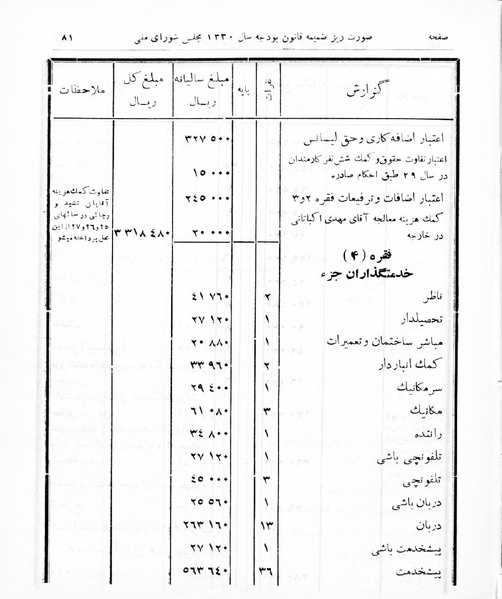 صفحه صورت ریز ضمیمه قانون بودجه سال ۱۳۳۰ مجلس شورای ملی ۸۱
گزارش نفرات پایه مبلغ سالیانه ریال مبلغ کل ریال ملاحظات
اعتبار اضافه کاری وحق لیسانس ۳۲۷ ۵۰۰
اعتبار تفاوت حقوق و کمك شش نفر کارمندان
در سال ۲۹ طبق احکام صادره ۱۵ ۰۰۰
اعتبار اضافات و ترفیعات فقره ۲و۳ ۲۴۵ ۰۰۰
کمك هزینه معالجه آقای مهدی اکباتانی
در خارجه ۲۰ ۰۰۰ ۳ ۳۱۸ ۴۸۰
تفاوت کمك هزینه
آقایان
رجائی در سالهای
۲۵و۲۶و۲۷ از این
محل پرداخته میشو
فقره (۴)
خدمتگذاران جزء
ناظر ۲ ۴۱ ۷۶۰
تحصیلدار ۱ ۲۷ ۱۲۰
مباشر ساختمان و تعمیرات ۱ ۲۰ ۸۸۰
کمك انبار دار ۲ ۳۳ ۹۶۰
سر مکانیك ۱ ۲۹ ۴۰۰
مکانیك ۳ ۶۱ ۰۸۰
راننده ۱ ۳۴ ۸۰۰
تلفونچی باشی ۱ ۲۷ ۱۲۰
تلفونچی ۳ ۴۵ ۰۰۰
دربان باشی ۱ ۲۵ ۵۶۰
دربان ۱۳ ۲۶۳ ۱۶۰
پیشخدمت باشی ۱ ۲۷ ۱۲۰
پیشخدمت ۳۶ ۵۶۳ ۶۴۰